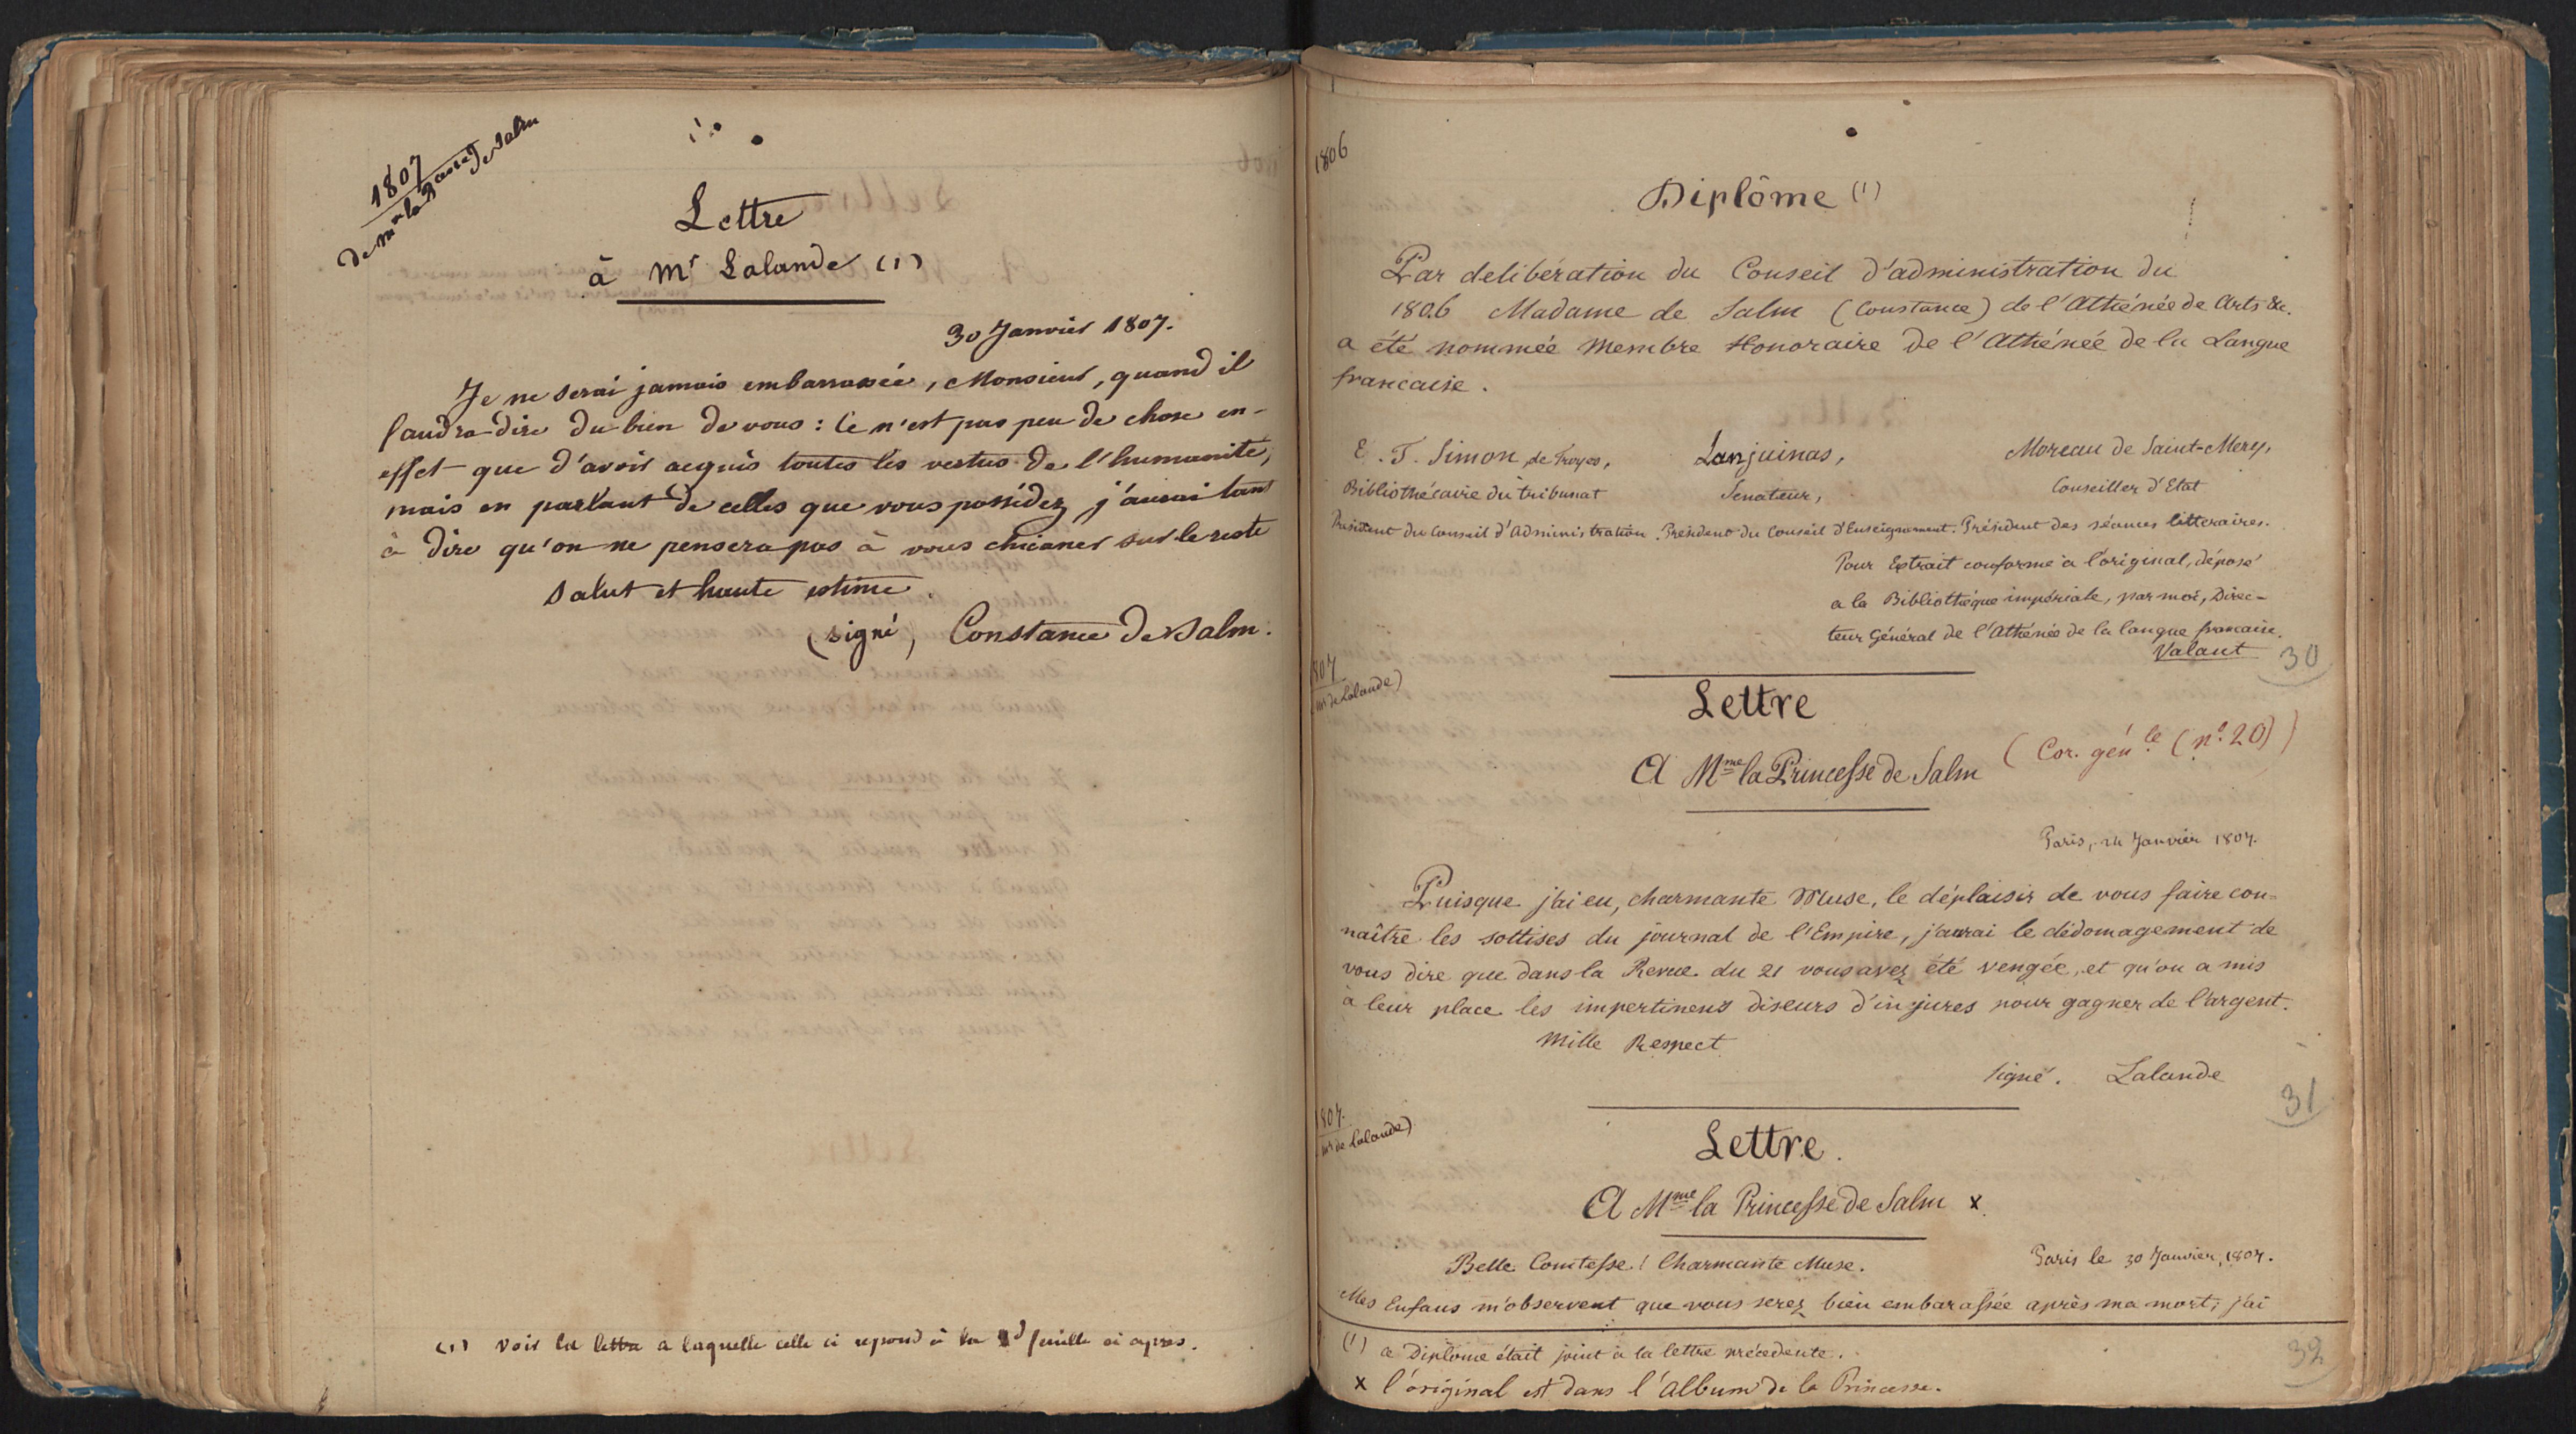 1807
de Mme la Pcesse de Salm
Lettre
à Mr Lalande (1)
30 Janvier 1807.
Je ne serai jamais embarrassée, Monsieur, quand il
faudra dire du bien de vous : Ce n'est pas peu de chose en-
effet que d'avoir acquis toutes les vertus de l'humanité,
mais en parlant de celles que vous possédez, j'aurai tant
à dire qu'on ne pensera pas à vous chicaner sur le reste
Salut et haute estime.
(signé, Constance de Salm.
(1) Voir la lettre a laquelle celle ci repond à la feuille ci après.
1806
Diplôme (1)
Par delibération du Conseil d'administration du
1806 Madame de Salm (Constance) de l'Athénée de Arts &c.
a été nommée Membre Honoraire de l'Athénée de la Langue
francaise.
E. T. Simon, de Troyes, Lanjuinas, Moreau de Saint-Mery,
Bibliothécaire du tribunat Senateur, Conseiller d'Etat
President du Conseil d'Administration. President du Conseil d'Enseignement. Président des séances litteraires.
Pour Extrait conforme à l'original, déposé
a la Bibliothéque impériale, par moi, Direc-
teur Général de l'Athénée de la langue francaise.
Valant
30
1807
(mr de Lalande)
Lettre
A Mme la Princesse de Salm (Cor. génle (no. 20))
Paris, 24 Janvier 1807.
Puisque j'ai eu, charmante Muse, le déplaisir de vous faire con-
naître les sottises du journal de l'Empire, j'aurai le dédomagement de
vous dire que dans la Revue du 21 vous avez été vengée, et qu'on a mis
à leur place les impertinens diseurs d'injures pour gagner de l'argent.
Mille Respect
Signé. Lalande
31
1807.
mr de Lalande)
Lettre.
A Mme la Princesse de Salm x.
Belle Comtesse! Charmante Muse. Paris le 30 Janvier, 1807.
Mes Enfans m'observent que vous serez bien embarassée après ma mort; j'ai
(1) ce Diplôme était joint à la lettre précedente.
32
x l'original est dans l'Album de la Princesse.